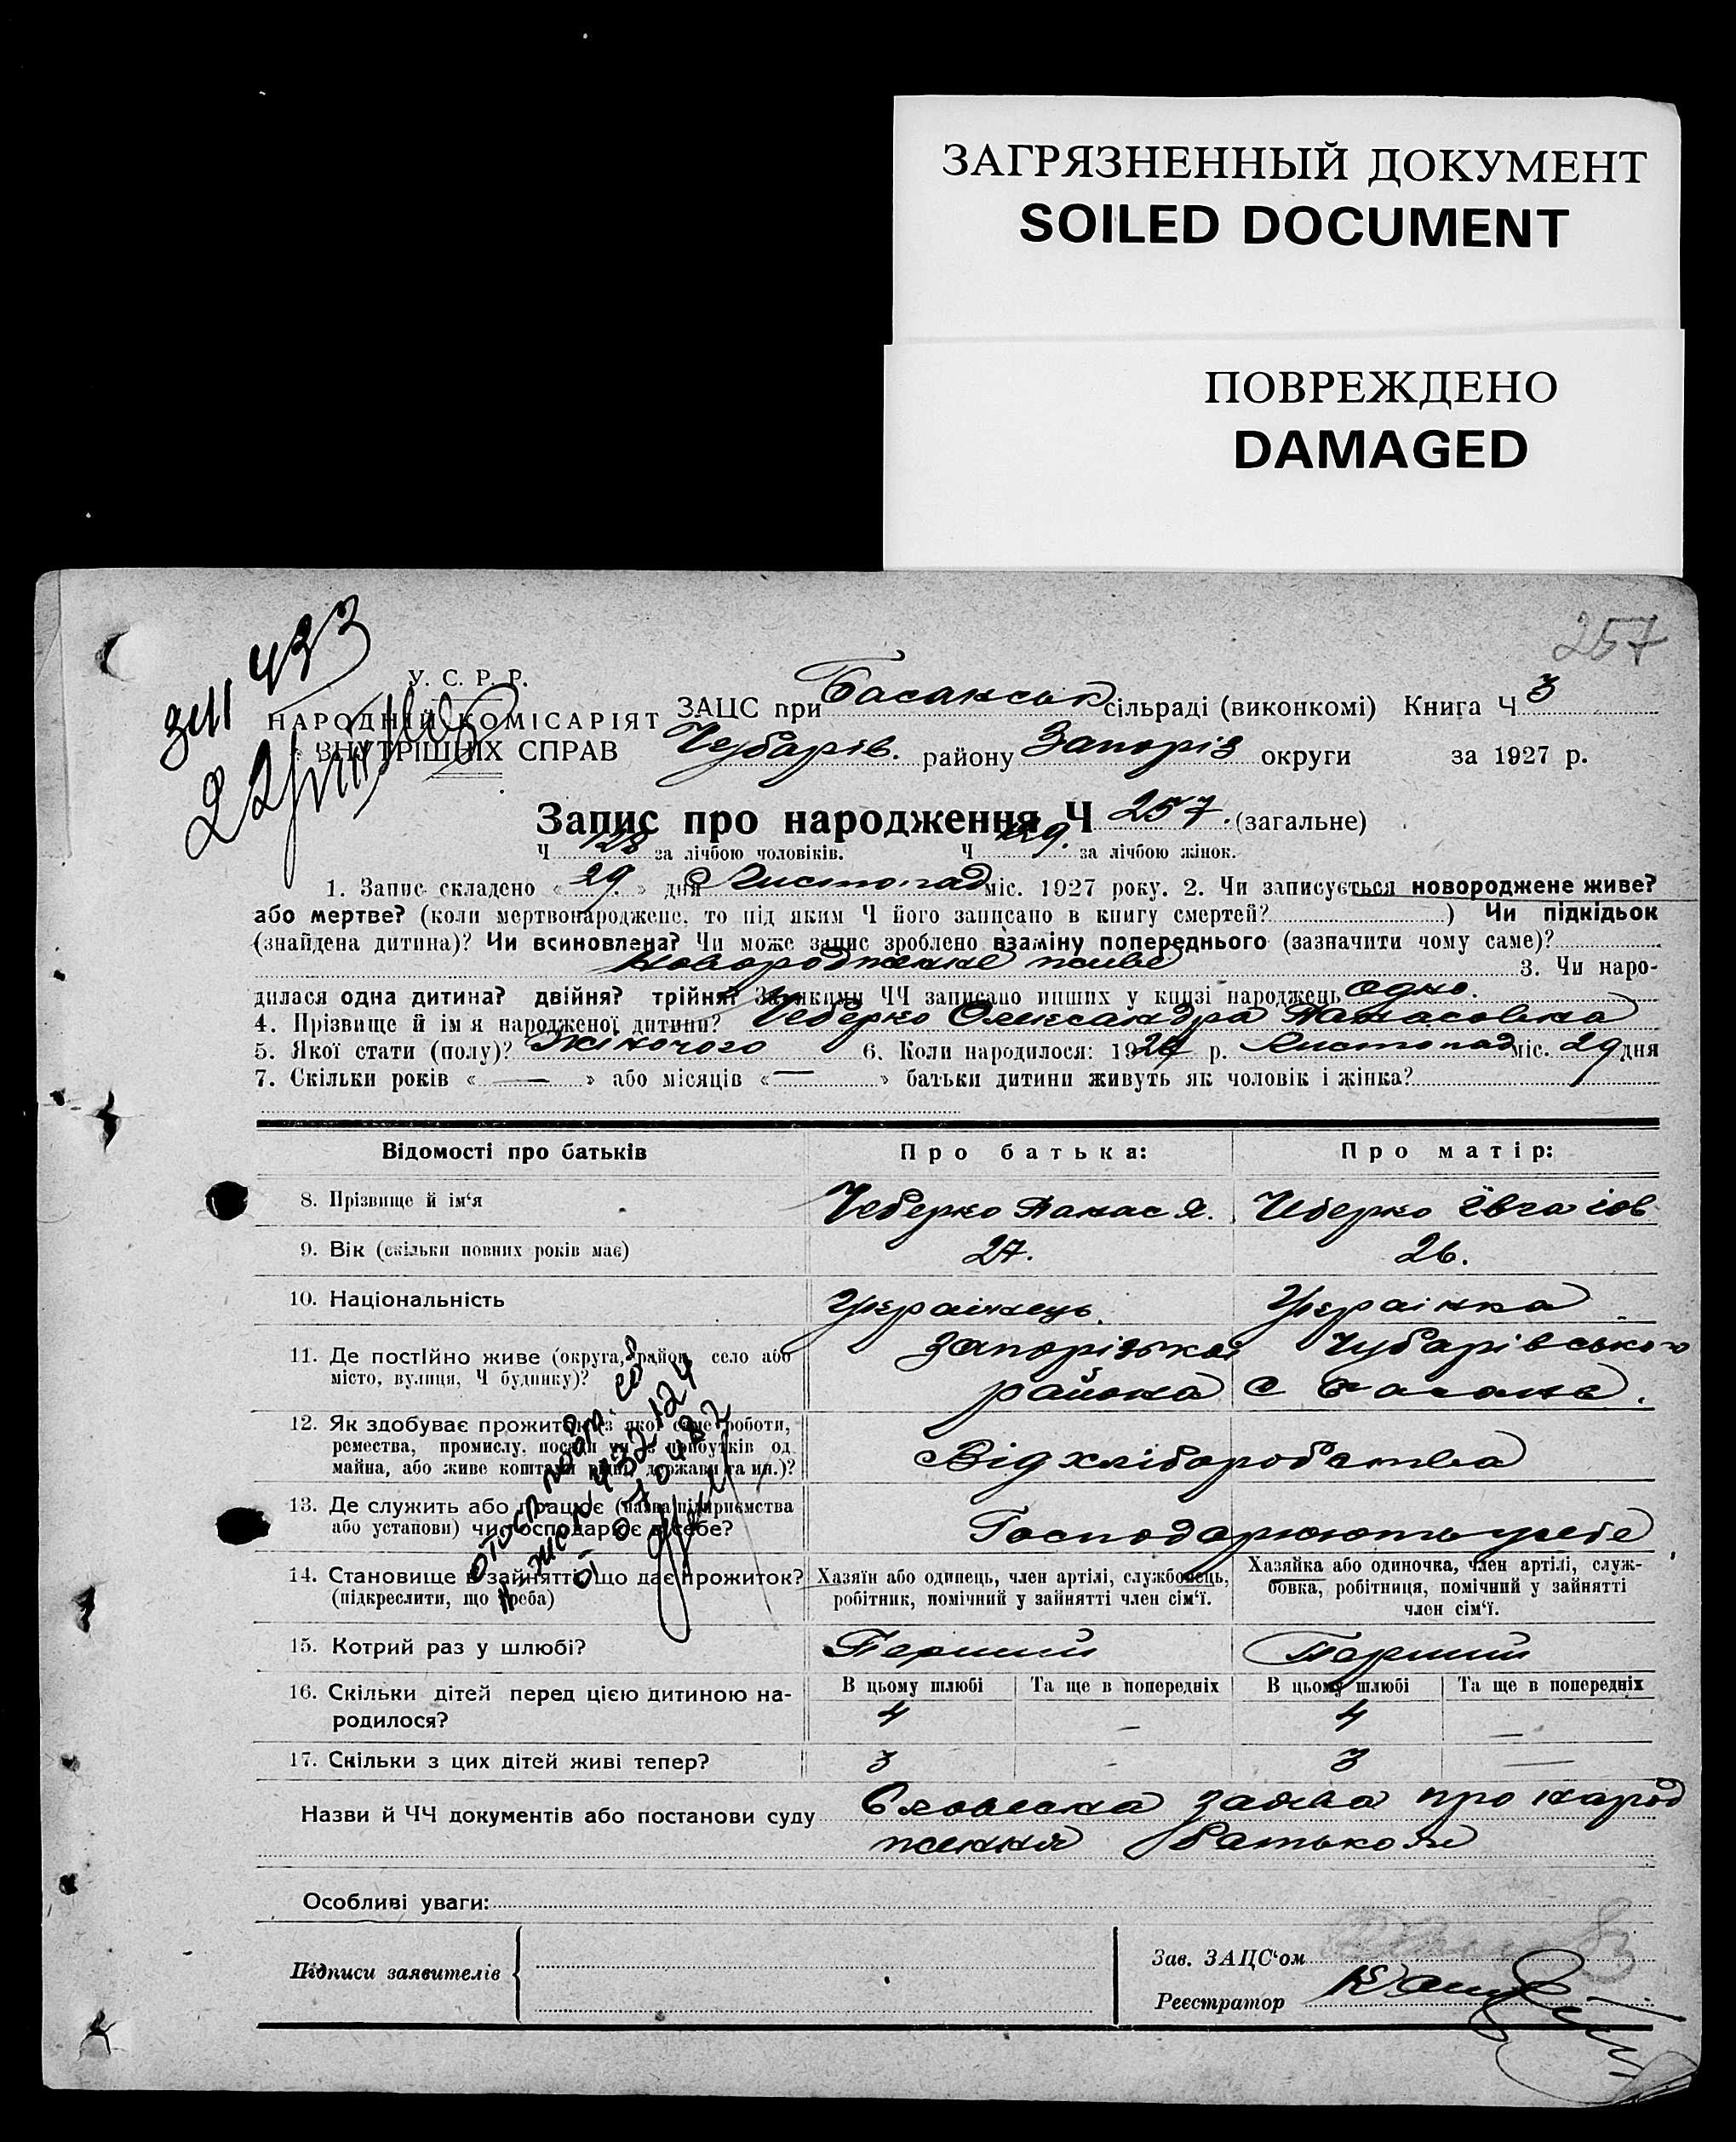 ЗАГРЯЗНЕННЫЙ ДОКУМЕНТ
SOILED DOCUMENT
ПОВРЕЖДЕНО
DAMAGED
257
433
У. С. Р. Р.
НАРОДНІЙ КОМІСАРІЯТ
ВНУТРІШНІХ СПРАВ
ЗАЦС при Басанськ сільраді (виконкомі) Книга Ч 3
Чубарів. району Запоріз округи за 1927 р.
Запис про народження Ч 257. (загальне)
Ч 128 за лічбою чоловіків. Ч 129. за лічбою жінок.
1. Запис складено « 29 » дня Листопад міс. 1927 року. 2. Чи записується новороджене живе?
або мертве? (коли мертвонароджене, то під яким Ч його записано в книгу смертей? ) Чи підкідьок
(знайдена дитина)? Чи всиновлена? Чи може запис зроблено взаміну попереднього (зазначити чому саме)?
Новородженне живе 3. Чи наро-
дилася одна дитина? двійня? трійня? За якими ЧЧ записано инших у книзі народжень одно.
4. Прізвище й ім я народженої дитини? Чеберко Олександра Панасовна
5. Якої статі (полу)? Жіночого 6. Коли народилося: 192 р. Листопад міс. 29 дня
7. Скільки років « — » або місяців « — » батьки дитини живуть як чоловік і жінка?
Відомості про батьків Про батька: Про матір:
8. Прізвище й ім‘я Чеберко Панас Я. Чеберко
9. Вік (скільки повних років має) 27. 26.
10. Національність Украінець. Украінка
11. Де постійно живе (округа, район, село або Запорізькоі Чубарівського
місто, вулиця, Ч будинку)? района с Басань.
12. Як здобуває прожиток (з якої саме роботи,
ремества, промислу, посади чи з прибутків од Від хліборобства
майна, або живе коштами рідні, держави та ин.)?
13. Де служить або працює (назва підприємства
або установи) чи господарює в себе? Господарюють у себе
14. Становище в зайнятті, що дає прожиток? Хазяїн або одинець, член артілі, службовець, Хазяйка або одиночка, член артілі, служ-
(підкреслити, що треба) робітник, помічний у зайнятті член сім‘ї. бовка, робітниця, помічний у зайнятті
член сім‘ї.
15. Котрий раз у шлюбі? Перший Перший
16. Скільки дітей перед цією дитиною на- В цьому шлюбі Та ще в попередніх В цьому шлюбі Та ще в попередніх
родилося? 4 – 4 —
17. Скільки з цих дітей живі тепер? 3 - 3 —
Назви й ЧЧ документів або постанови суду Словесна заява про народ
ження батьком
Особливі уваги:
Підписи заявителів
Зав. ЗАЦС‘ом
Реєстратор